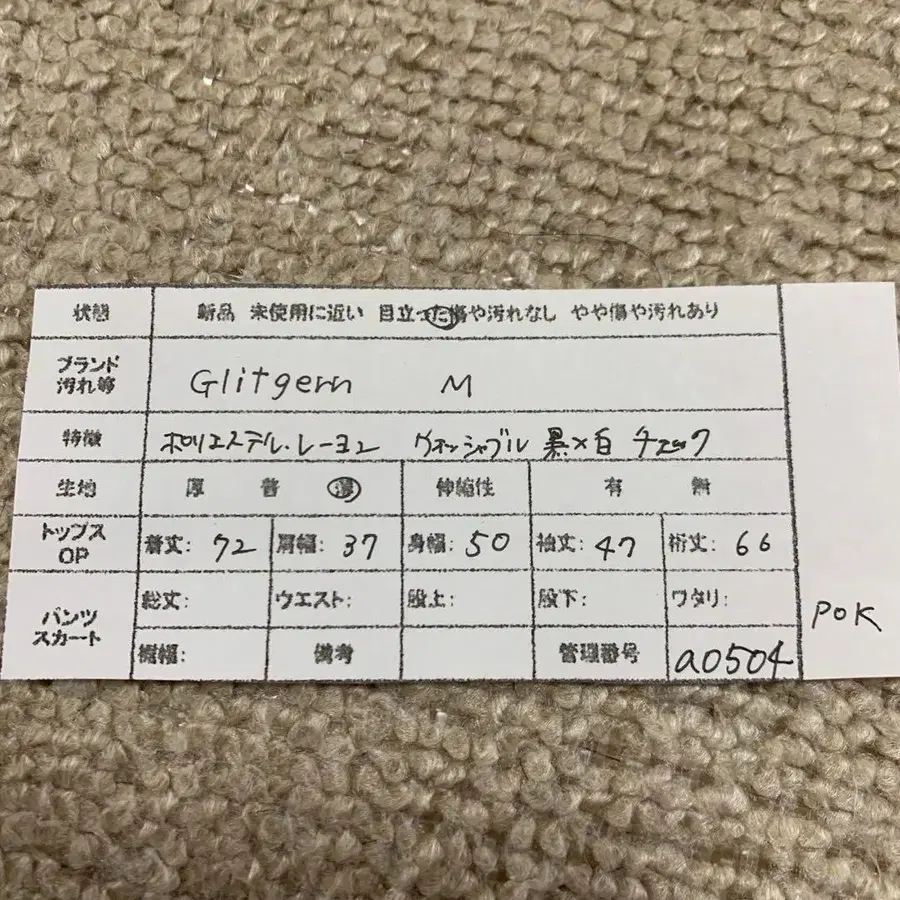 状態 新品 未使用に近い 目立った傷や汚れなし やや傷や汚れあり
ブランド
汚れ等 Glitgern M
特徴 ポリエステル・レーヨン ウォッシャブル 黒×白 チェック
生地 厚 普 薄 伸縮性 有 無
トップス
OP 着丈: 72 肩幅: 37 身幅: 50 袖丈: 47 裄丈: 66
パンツ
スカート 総丈: ウエスト: 股上: 股下: ワタリ:
裾幅: 備考 管理番号 a0504
POK